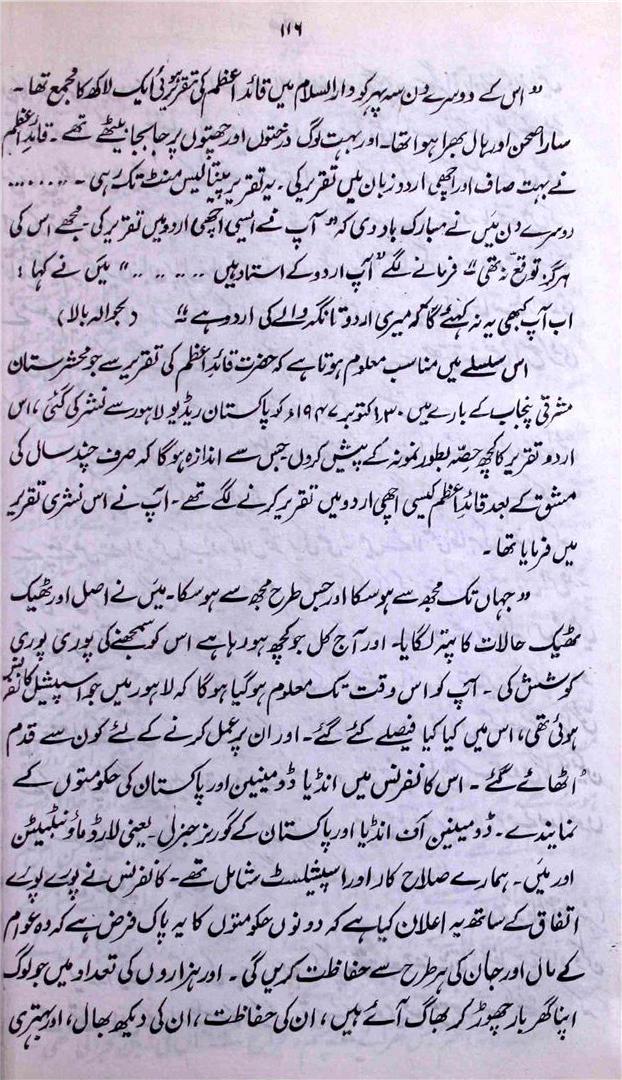 ۱۱۶
” اس کے دوسرے دن سہ پہر کو دارالسلام میں قائد اعظم کی تقریر ہوئی ایک لاکھ کا مجمع تھا ۔
سارا صحن اور ہال بھرا ہوا تھا۔ اور بہت لوگ درختوں اور چھتوں پر جا بجا بیٹھے تھے ۔ قائد اعظم
نے بہت صاف اور اچھی اردو زبان میں تقریر کی ۔ یہ تقریر پینتالیس منٹ تک رہی ۔ ........
دوسرے دن میں نے مبارک باد دی کہ ” آپ نے ایسی اچھی اردو میں تقریر کی ۔ مجھے اس کی
ہرگز توقع نہ تھی “ فرمانے لگے ” آپ اردو کے استاد ہیں ...... “ میں نے کہا :
اب آپ کبھی یہ نہ کہئے گا کہ میری اردو تانگہ والے کی اردو ہے “ ( بحوالہ بالا )
اس سلسلے میں مناسب معلوم ہوتا ہے کہ حضرت قائد اعظم کی تقریر سے جو محشرستان
مشرقی پنجاب کے بارے میں ۳۰ اکتوبر ۱۹۴۷ء کو پاکستان ریڈیو لاہور سے نشر کی گئی ، اس
اردو تقریر کا کچھ حصہ بطور نمونہ کے پیش کروں جس سے اندازہ ہوگا کہ صرف چند سال کی
مشق کے بعد قائد اعظم کیسی اچھی اردو میں تقریر کرنے لگے تھے ۔ آپ نے اس نشری تقریر
میں فرمایا تھا ۔
” جہاں تک مجھ سے ہو سکا اور جس طرح مجھ سے ہو سکا۔ میں نے اصل اور ٹھیک
ٹھیک حالات کا پتہ لگایا۔ اور آج کل جو کچھ ہو رہا ہے اس کو سمجھنے کی پوری پوری
کوشش کی ۔ آپ کو اس وقت تک معلوم ہو گیا ہوگا کہ لاہور میں جو اسپیشیل کانفرنس
ہوئی تھی ، اس میں کیا کیا فیصلے کئے گئے ۔ اور ان پر عمل کرنے کے لئے کون سے قدم
اٹھائے گئے ۔ اس کانفرنس میں انڈیا ڈومینین اور پاکستان کی حکومتوں کے
نمایندے ۔ ڈومینین آف انڈیا اور پاکستان کے گورنر جنرل ۔ یعنی لارڈ ماؤنٹبیٹن
اور میں ۔ ہمارے صلاح کار اور اسپیشلسٹ شامل تھے ۔ کانفرنس نے پورے پورے
اتفاق کے ساتھ یہ اعلان کیا ہے کہ دونوں حکومتوں کا یہ پاک فرض ہے کہ وہ عوام
کے مال اور جان کی ہر طرح سے حفاظت کریں گی ۔ اور ہزاروں کی تعداد میں جو لوگ
اپنا گھر بار چھوڑ کر بھاگ آئے ہیں ، ان کی حفاظت ، ان کی دیکھ بھال ، اور بہتری